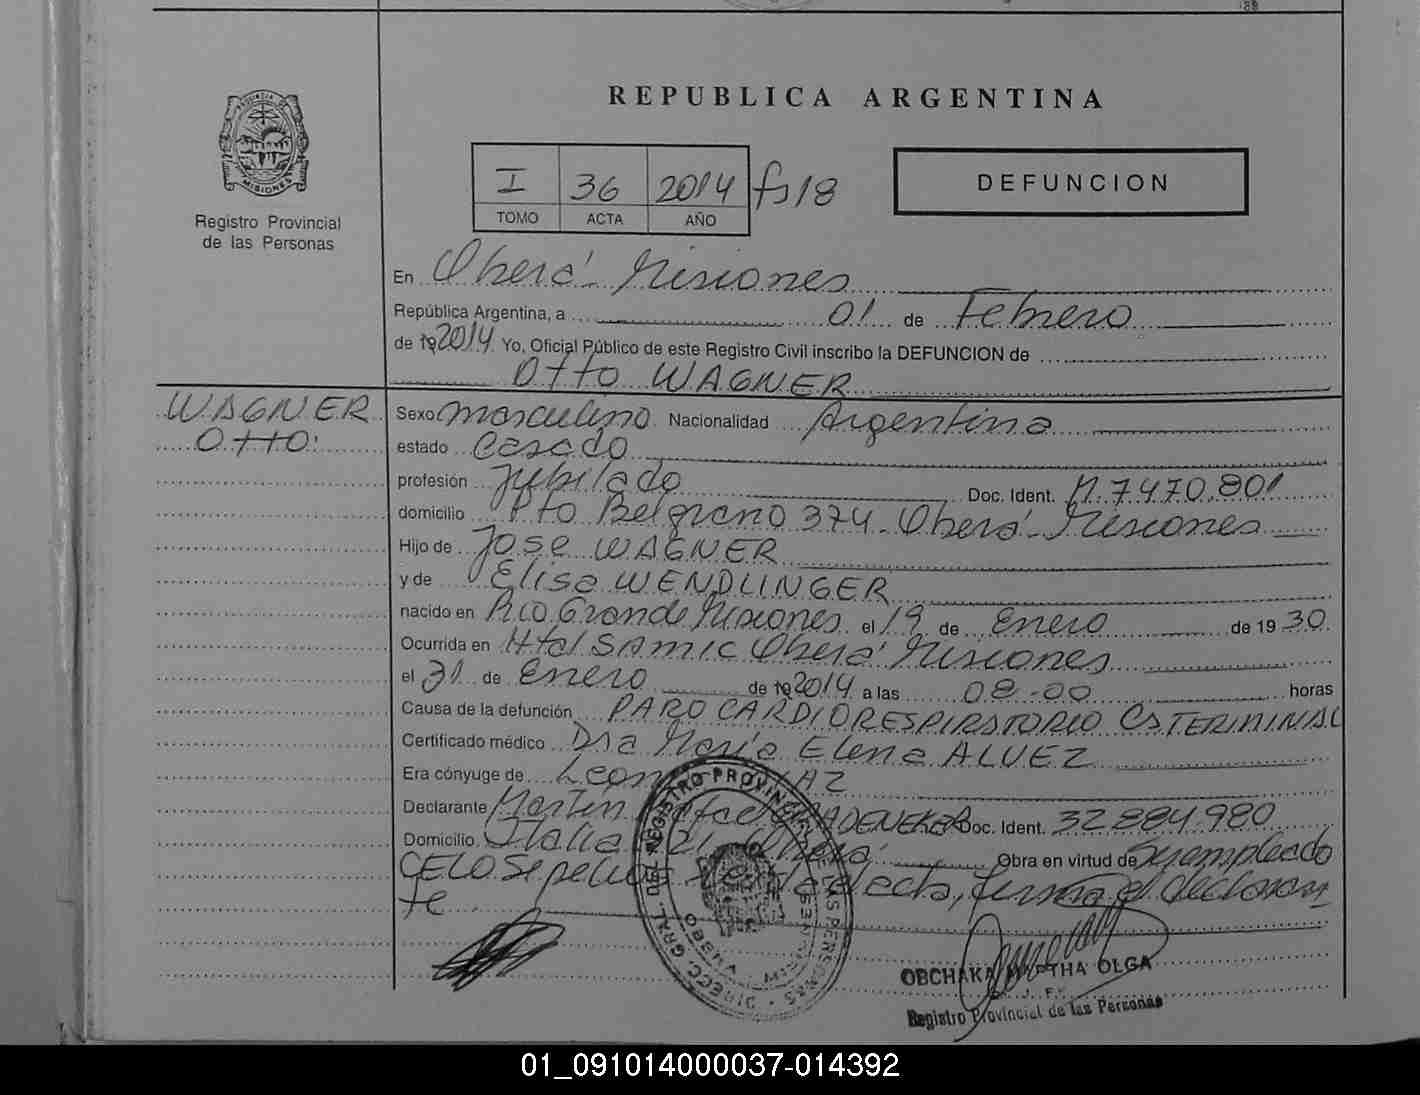 REPUBLICA ARGENTINA
PROVINCIA DE
MISIONES
Registro Provincial
de las Personas
I 36 2014 fs 18
TOMO ACTA AÑO
DEFUNCION
En Oberá - Misiones
República Argentina, a 01 de Febrero
de 19 2014 Yo, Oficial Público de este Registro Civil inscribo la DEFUNCION de
Otto WAGNER
WAGNER
Otto
Sexo masculino Nacionalidad Argentina
estado Casado
profesión Jubilado Doc. Ident. M. 7.470.801
domicilio Pto Belgrano 374 - Oberá - Misiones
Hijo de Jose WAGNER
y de Elisa WENDLINGER
nacido en Rio Grande Misiones el 19 de Enero de 19 30
Ocurrida en Htal SAMIC Oberá Misiones
el 31 de Enero de 19 2014 a las 08-00 horas
Causa de la defunción PARO CARDIORESPIRATORIO CA TERMINAL
Certificado médico Dra María Elena ALVEZ
Era cónyuge de
Declarante Martin Doc. Ident. 32884980
Domicilio Italia Oberá Obra en virtud de Ser empleado
CELO Sepelios firma el declaran
te
DIREC. GRAL. DEL REGISTRO PROVINCIAL DE LAS PERSONAS
OBCHAKA MIRTHA OLGA
Registro Provincial de las Personas
01_091014000037-014392